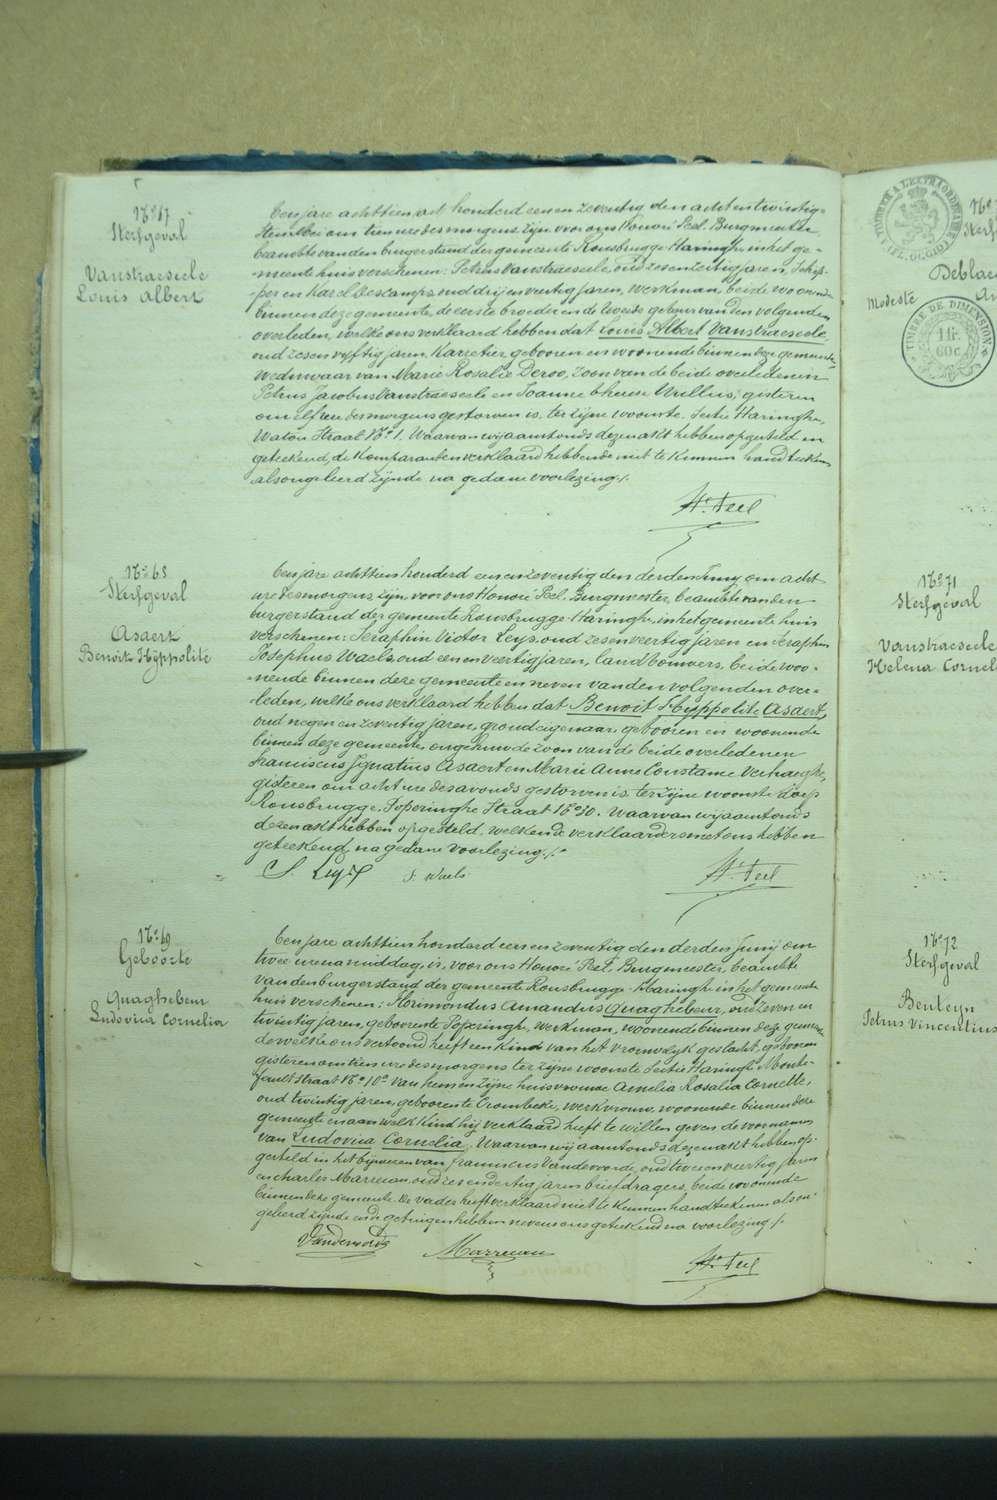 N° 67
Sterfgeval
Vanstraeseele
Louis Albert
Een jare achttien honderd een en zeventig den acht en twintig
om tien ure des morgens zijn voor ons Honoré Peel, Burgmeester
beambte van den burgerstand der gemeente Rousbrugge-Haringhe in het ge-
meente huis verschenen: Petrus Vanstraeseele, oud zes en zestig jaren, Schip-
per en Karel Descamps, oud drij en veertig jaren, werkman, beide woonende
binnen deze gemeente, de eerste broeder en de tweede gebuer van den volgenden
overleden, welke ons verklaard hebben dat Louis Albert Vanstraeseele,
oud zes en vijftig jaren, Karzetier, gebooren en woonende binnen deze gemeente,
weduwaar van Marie Rosalie Deroo, zoon van de beide overledenen
Petrus Jacobus Vanstraeseele en Joanne Therese Wullus, gisteren
om elf ure des morgens gestorven is, ter zijne woonste, Sectie Haringhe,
Watou Straat N° 1. Waarvan wij aanstonds dezen akt hebben opgesteld en
geteekend, de Komparanten verklaard hebbende niet te Kunnen handteekenen
als ongeleerd zijnde na gedane voorlezing./.
H. Peel
N° 68
Sterfgeval
Asaert
Benoit Hyppolite
Een jare achttien honderd een en zeventig den derden Junij om acht
ure des morgens, zijn, voor ons Honoré Peel, Burgmeester, beambte van den
burgerstand der gemeente Rousbrugge-Haringhe, in het gemeente huis
verschenen: Seraphin Victor Leys, oud zes en veertig jaren en Seraphin
Josephus Waels, oud een en veertig jaren, landbouwers, beide woo-
nende binnen deze gemeente en neven van den volgenden over-
leden, welke ons verklaard hebben dat Benoit Hyppolite Asaert,
oud negen en zeventig jaren, grondeigenaar, gebooren en woonende
binnen deze gemeente, ongehuwde zoon van de beide overledenen
Franciscus Ignatius Asaert en Marie Anne Constance Verhaeghe,
gisteren om acht ure des avonds gestorven is, ter zijne woonste Dorp
Rousbrugge, Poperinghe Straat N° 50. Waarvan wij aanstonds
dezen akt hebben opgesteld, welken de verklaarders met ons hebben
geteekend na gedane voorlezing./.
S. Leys
S. Waels
H. Peel
N° 69
Geboorte
Quaghebeur
Ludovica Cornelia
Een jare achttien honderd een en zeventig den derden Junij om
twee uren namiddag, is, voor ons Honoré Peel, Burgmeester, beambte
van den burgerstand der gemeente Rousbrugge-Haringhe in het gemeente
huis verschenen: Florimondus Amandus Quaghebeur, oud zeven en
twintig jaren, geboren te Poperinghe, werkman, woonende binnen deze gemeente
dewelke ons vertoond heeft een Kind van het vrouwelyk geslacht, geboren
gisteren om tien ure des morgens ter zijne woonste Sectie Haringhe,
Straat N° 10° van hem en zijne huisvrouwe Amelia Rosalia Cornette,
oud twintig jaren, geboren te Crombeke, werkvrouw, woonende binnen deze
gemeente en aan welk Kind hij verklaard heeft te willen geven de voornamen
van Ludovica Cornelia. Waarvan wij aanstonds dezen akt hebben op-
gesteld in het bijwezen van Franciscus Vandevoorde, oud twee en veertig jaren
en Charles Marreeuw, oud zes en dertig jaren briefdragers, beide woonende
binnen deze gemeente. De vader heeft verklaard niet te Kunnen handteekenen als on-
geleerd zijnde en de getuigen hebben nevens ons geteekend na voorlezing./.
Vandevoorde
Marreeuw
H. Peel
TIMBRE A L'EXTRAORDINAIRE
FL. OCCID.
Modeste
TIMBRE DE DIMENSION
1 fr.
60 c.
N° 71
Sterfgeval
Vanstraeseele
Helena Corneli
N° 72
Sterfgeval
Benteyn
Petrus Vincentius